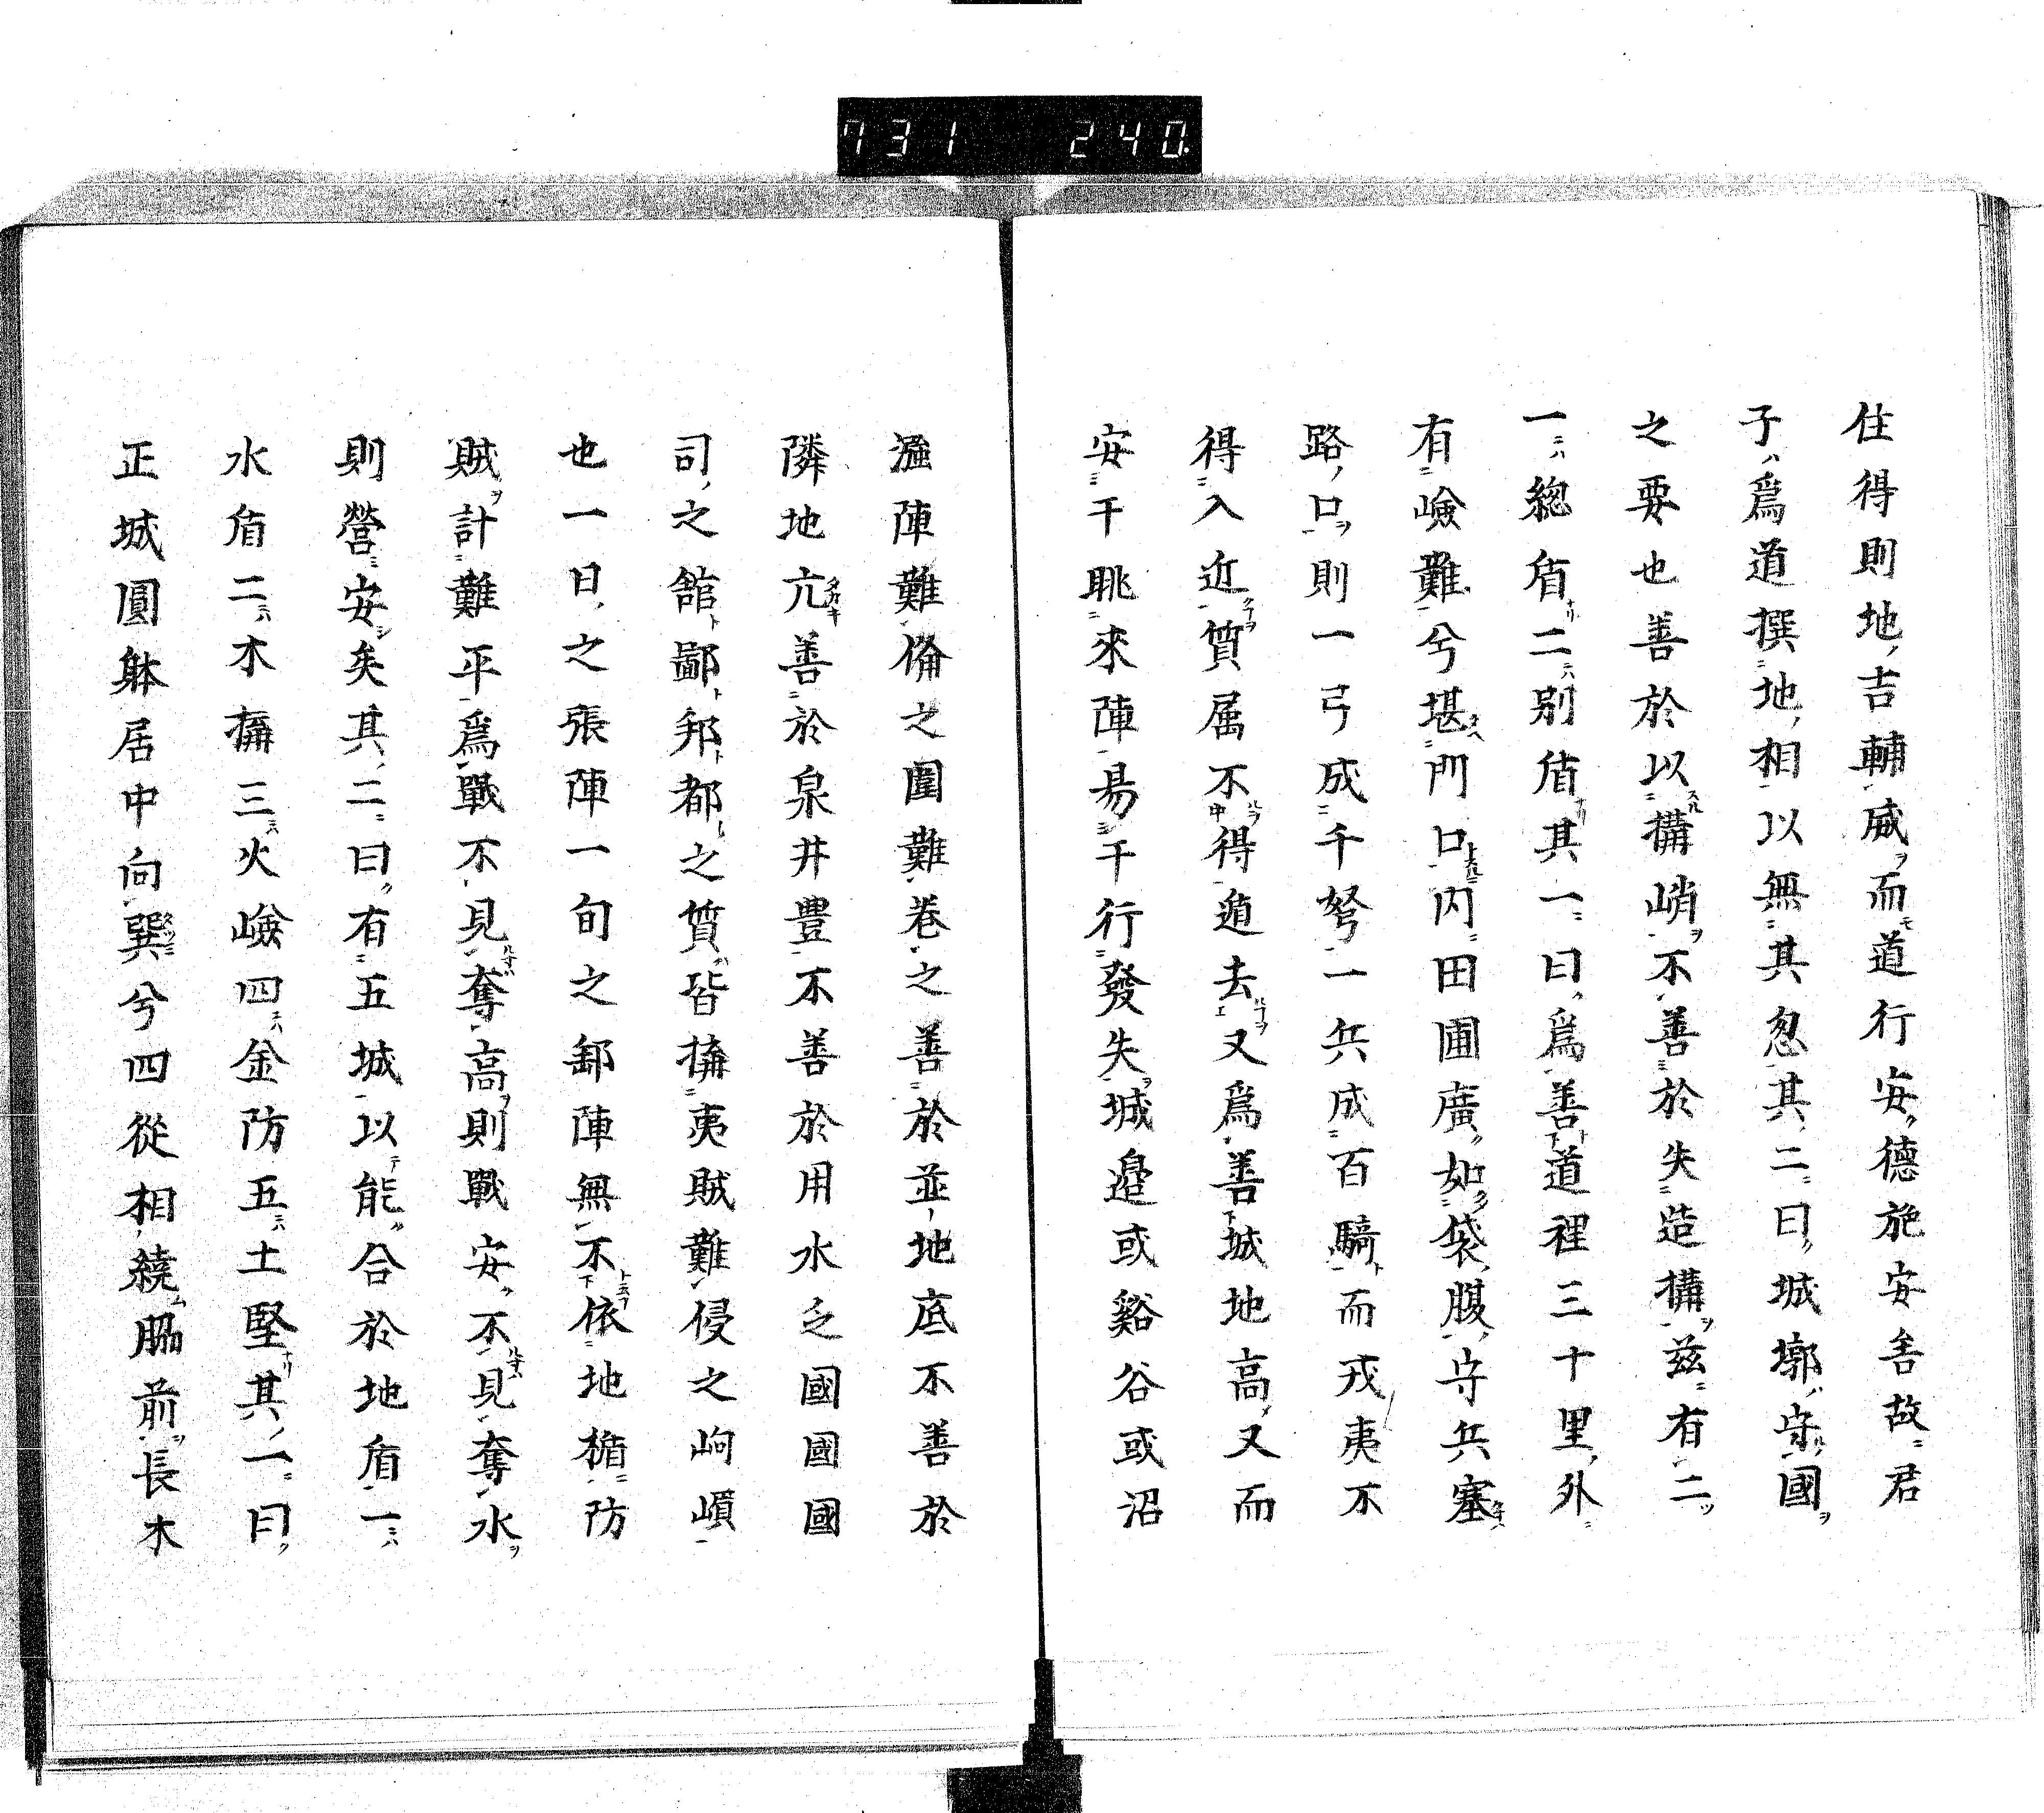 731 240
住得則地吉輔威而道行安德施安舍故君
子爲道撰地相以無其忽其二曰城墎守國
之要也善於以構峭不善於失造構兹有二
一總盾二別盾其一曰爲善道裡三十里外
有嶮難兮堪門口内田圃廣如袋腹守兵塞
路口則一弓成千弩一兵成百騎而戎夷不
得入近質属不得遁去又爲善城地高又而
安干眺來陣昜干行發失城邉或谿谷或沼
溢陣難脩之圍難巻之善於並地底不善於
隣地亢善於泉井豊不善於用水乏國國國
司之館鄙邦都之質皆搆夷賊難侵之岣㟧
也一日之張陣一旬之郵陣無不依地楯防
賊計難平爲戰不見奪高則戰安不見奪水
則營安矣其二曰有五城以能合於地盾一
水盾二木搆三火嶮四金防五土堅其一曰
正城圓躰居中向巽兮四從相繞脇前長木